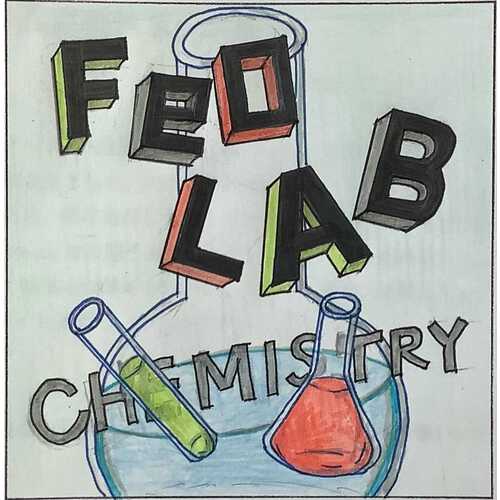 FeO
LAB
CHEMISTRY